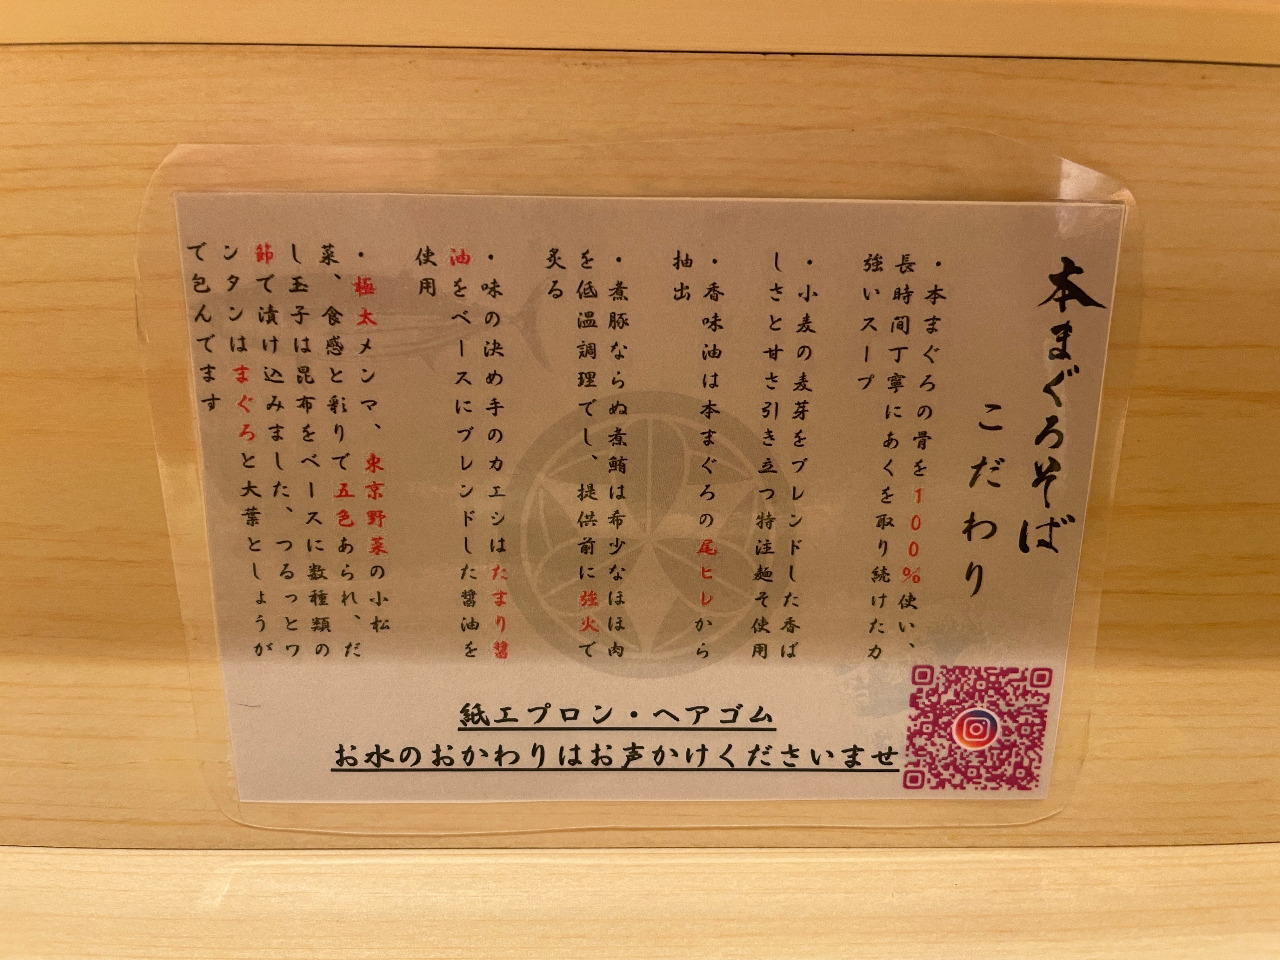 本まぐろそば
こだわり
・本まぐろの骨を100%使い、
長時間丁寧にあくを取り続けたカ
強いスープ
・小麦の麦芽をブレンドした香ば
しさと甘さ引き立つ特注麺そ使用
・香味油は本まぐろの尾ヒレから
抽出
・煮豚ならぬ煮鮪は希少なほほ肉
を低温調理でし、提供前に強火で
炙る
・味の決め手のカエシはたまり醤
油をベースにブレンドした醤油を
使用
・極太メンマ、東京野菜の小松
菜、食感と彩りで五色あられ、だ
し玉子は昆布をベースに数種類の
節で漬け込みました、つるっとワ
ンタンはまぐろと大葉としょうが
で包んでます
紙エプロン・ヘアゴム
お水のおかわりはお声かけくださいませ